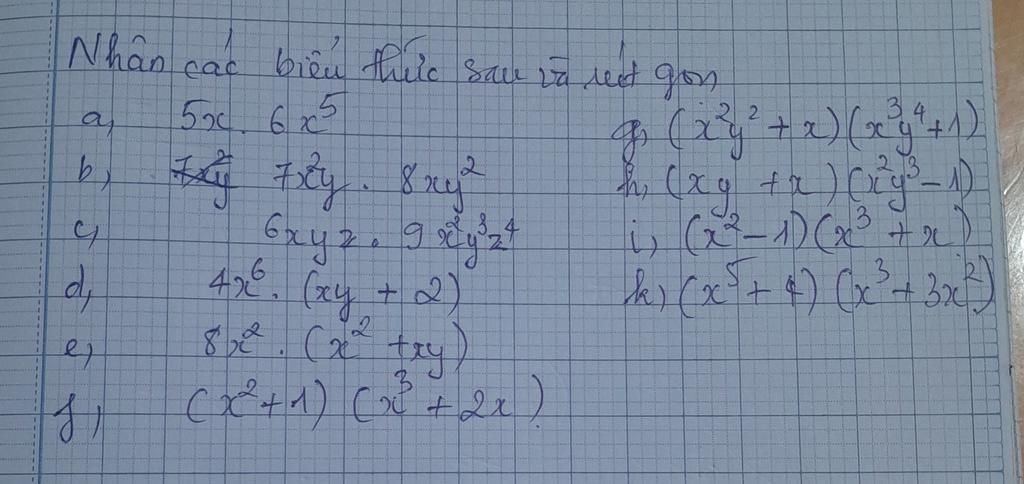 Nhân các biểu thức sau và rút gọn
a, 5x . 6x⁵
b, 7x²y . 8xy²
c, 6xyz . 9x²y³z⁴
d, 4x⁶ . (xy + 2)
e, 8x² . (x² + xy)
f, (x² + 1) (x³ + 2x)
g, (x²y² + x) (x³y⁴ + 1)
h, (xy + x) (x²y³ - 1)
i, (x² - 1) (x³ + x)
k) (x⁵ + 4) (x³ + 3x²)